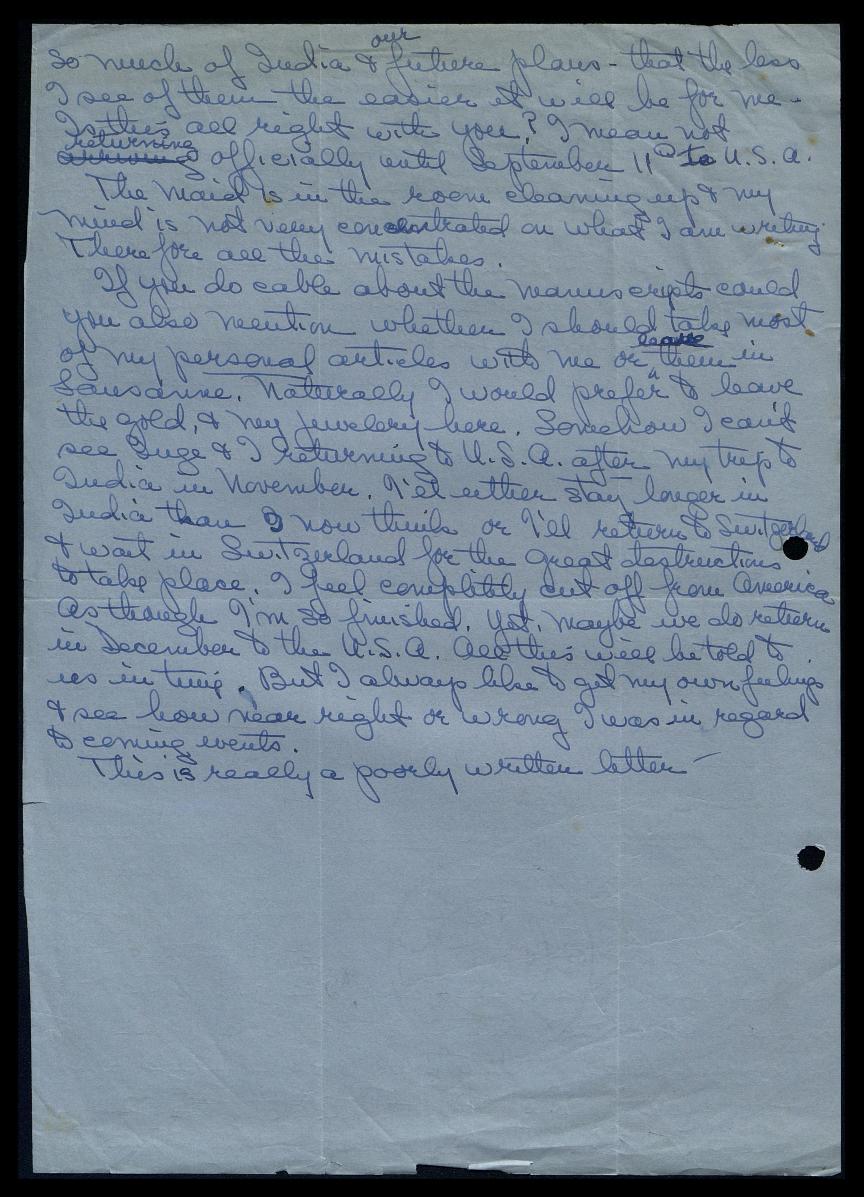 so much of India & our future plans - that the less
I see of them the easier it will be for me -
Is this all right with you? I mean not
returning officially until September 11th to U.S.A.
The maid is in the room cleaning up & my
mind is not very concentrated on what I am writing
Therefore all the mistakes.
If you do cable about the manuscripts could
you also mention whether I should take most
of my personal articles with me or leave them in
Lausanne. Naturally I would prefer to leave
the gold, & my jewelery here. Somehow I can't
see Inge & I returning to U.S.A. after my trip to
India in November. I'll either stay longer in
India than I now think or I'll return to Switzerland
& wait in Switzerland for the great destructions
to take place. I feel complitbly cut off from America
As though I'm so finished. Yet, maybe we do return
in December to the U.S.A. All this will be told to
us in time. But I always like to get my own feelings
& see how near right or wrong I was in regard
to coming events.
This is really a poorly written letter -